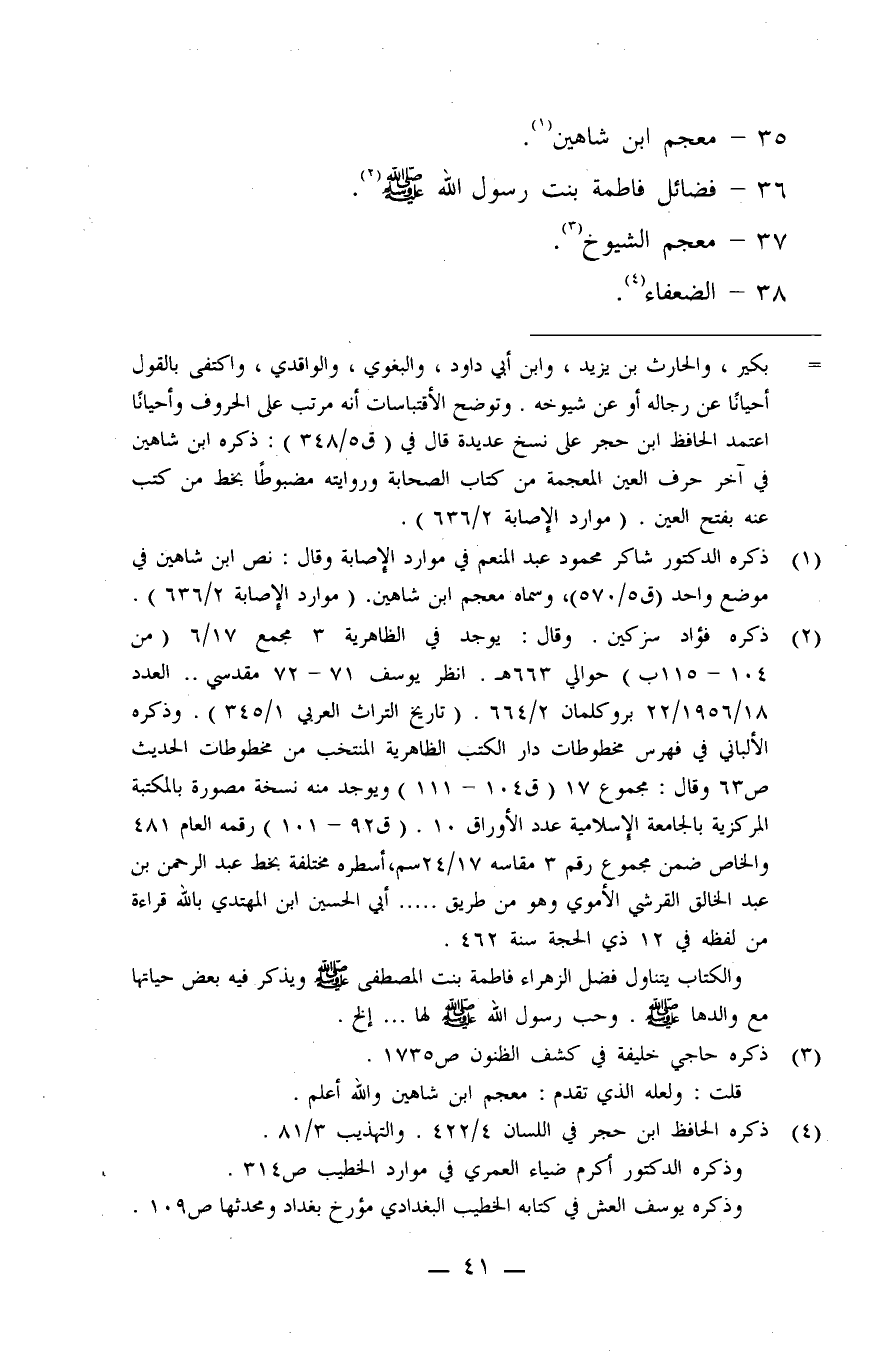 ٣٥ – معجم ابن شاهين(١).
٣٦ – فضائل فاطمة بنت رسول الله ﷺ(٢).
٣٧ – معجم الشيوخ(٣).
٣٨ – الضعفاء(٤).
= بكير ، والحارث بن يزيد ، وابن أبي داود ، والبغوي ، والواقدي ، واكتفى بالقول
أحيانًا عن رجاله أو عن شيوخه . وتوضح الأقتباسات أنه مرتب على الحروف وأحيانًا
اعتمد الحافظ ابن حجر على نسخ عديدة قال في ( ق٣٤٨/٥ ) : ذكره ابن شاهين
في آخر حرف العين المعجمة من كتاب الصحابة وروايته مضبوطًا بخط من كتب
عنه بفتح العين . ( موارد الإصابة ٦٣٦/٢ ) .
(١) ذكره الدكتور شاكر محمود عبد المنعم في موارد الإصابة وقال : نص ابن شاهين في
موضع واحد (ق٥٧٠/٥)، وسماه معجم ابن شاهين. ( موارد الإصابة ٦٣٦/٢ ) .
(٢) ذكره فؤاد سزكين . وقال : يوجد في الظاهرية ٣ مجمع ٦/١٧ ( من
١٠٤ – ١١٥ب ) حوالي ٦٦٣هـ . انظر يوسف ٧١ – ٧٢ مقدسي .. العدد
٢٢/١٩٥٦/١٨ بروكلمان ٦٦٤/٢ . ( تاريخ التراث العربي ٣٤٥/١ ) . وذكره
الألباني في فهرس مخطوطات دار الكتب الظاهرية المنتخب من مخطوطات الحديث
ص٦٣ وقال : مجموع ١٧ ( ق١٠٤ – ١١١ ) ويوجد منه نسخة مصورة بالمكتبة
المركزية بالجامعة الإسلامية عدد الأوراق ١٠ . ( ق٩٢ – ١٠١ ) رقمه العام ٤٨١
والخاص ضمن مجموع رقم ٣ مقاسه ٢٤/١٧سم،أسطره مختلفة بخط عبد الرحمن بن
عبد الخالق القرشي الأموي وهو من طريق ..... أبي الحسين ابن المهتدي بالله قراءة
من لفظه في ١٢ ذي الحجة سنة ٤٦٢ .
والكتاب يتناول فضل الزهراء فاطمة بنت المصطفى ﷺ ويذكر فيه بعض حياتها
مع والدها ﷺ . وحب رسول الله ﷺ لها ... إلخ .
(٣) ذكره حاجي خليفة في كشف الظنون ص١٧٣٥ .
قلت : ولعله الذي تقدم : معجم ابن شاهين والله أعلم .
(٤) ذكره الحافظ ابن حجر في اللسان ٤٢٢/٤ . والتهذيب ٨١/٣ .
وذكره الدكتور أكرم ضياء العمري في موارد الخطيب ص٣١٤ .
وذكره يوسف العش في كتابه الخطيب البغدادي مؤرخ بغداد ومحدثها ص١٠٩ .
— ٤١ —